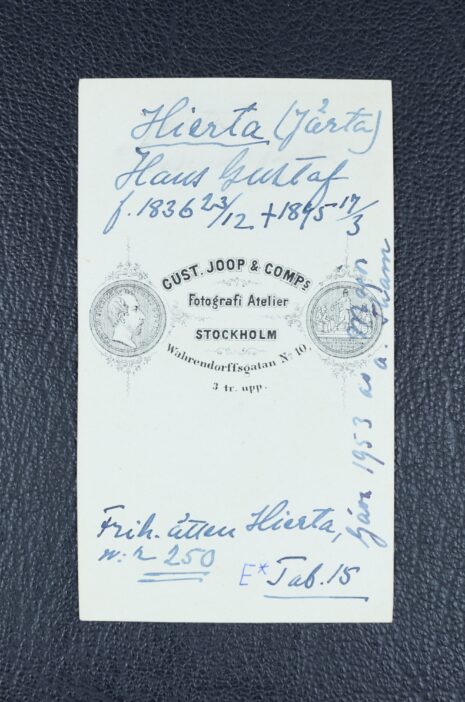 Hierta (Järta)
Hans Gustaf
f. 1836 23/12 + 1895 17/3
GUST. JOOP & COMPs
Fotografi Atelier
STOCKHOLM
Wahrendorffsgatan No 10.
3 tr. upp.
Frih. ätten Hierta,
n:r 250
E* Tab. 15
1953